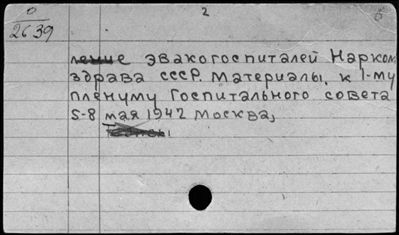 0
2639
2
ление эвакогоспиталей Нарком
здрава СССР. Материалы, к 1-му
пленуму Госпитального совета
5-8 мая 1942 Москва,